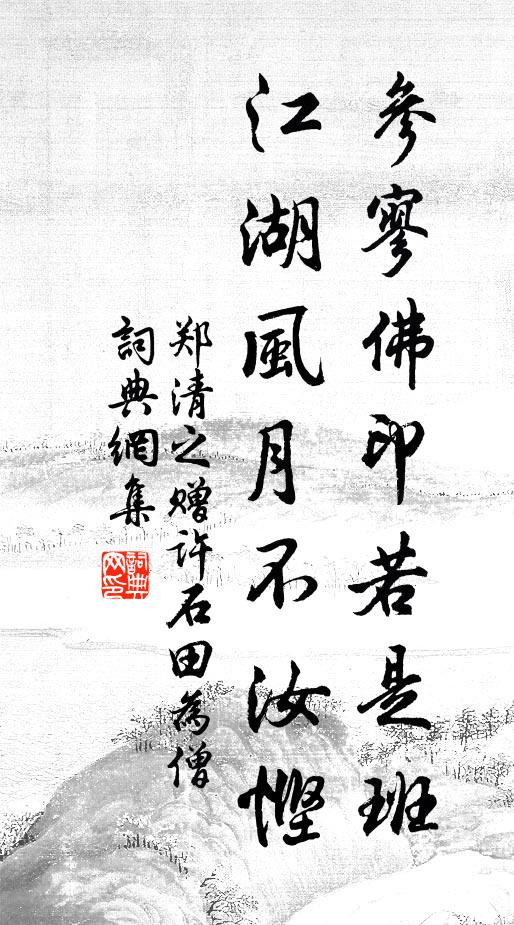 參寥佛印若是班
江湖風月不汝慳
郑清之赠许石田為僧
詞典網集
詞典
网印